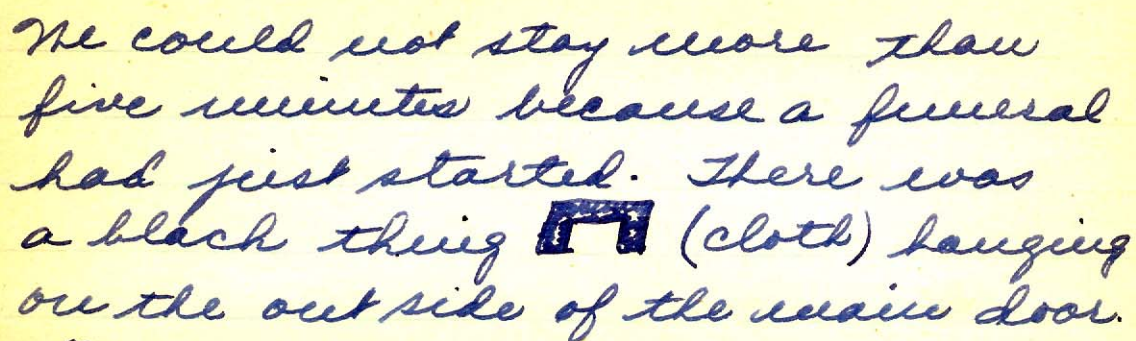 We could not stay more than
five minutes because a funeral
had just started. There was
a black thing (cloth) hanging
on the outside of the main door.